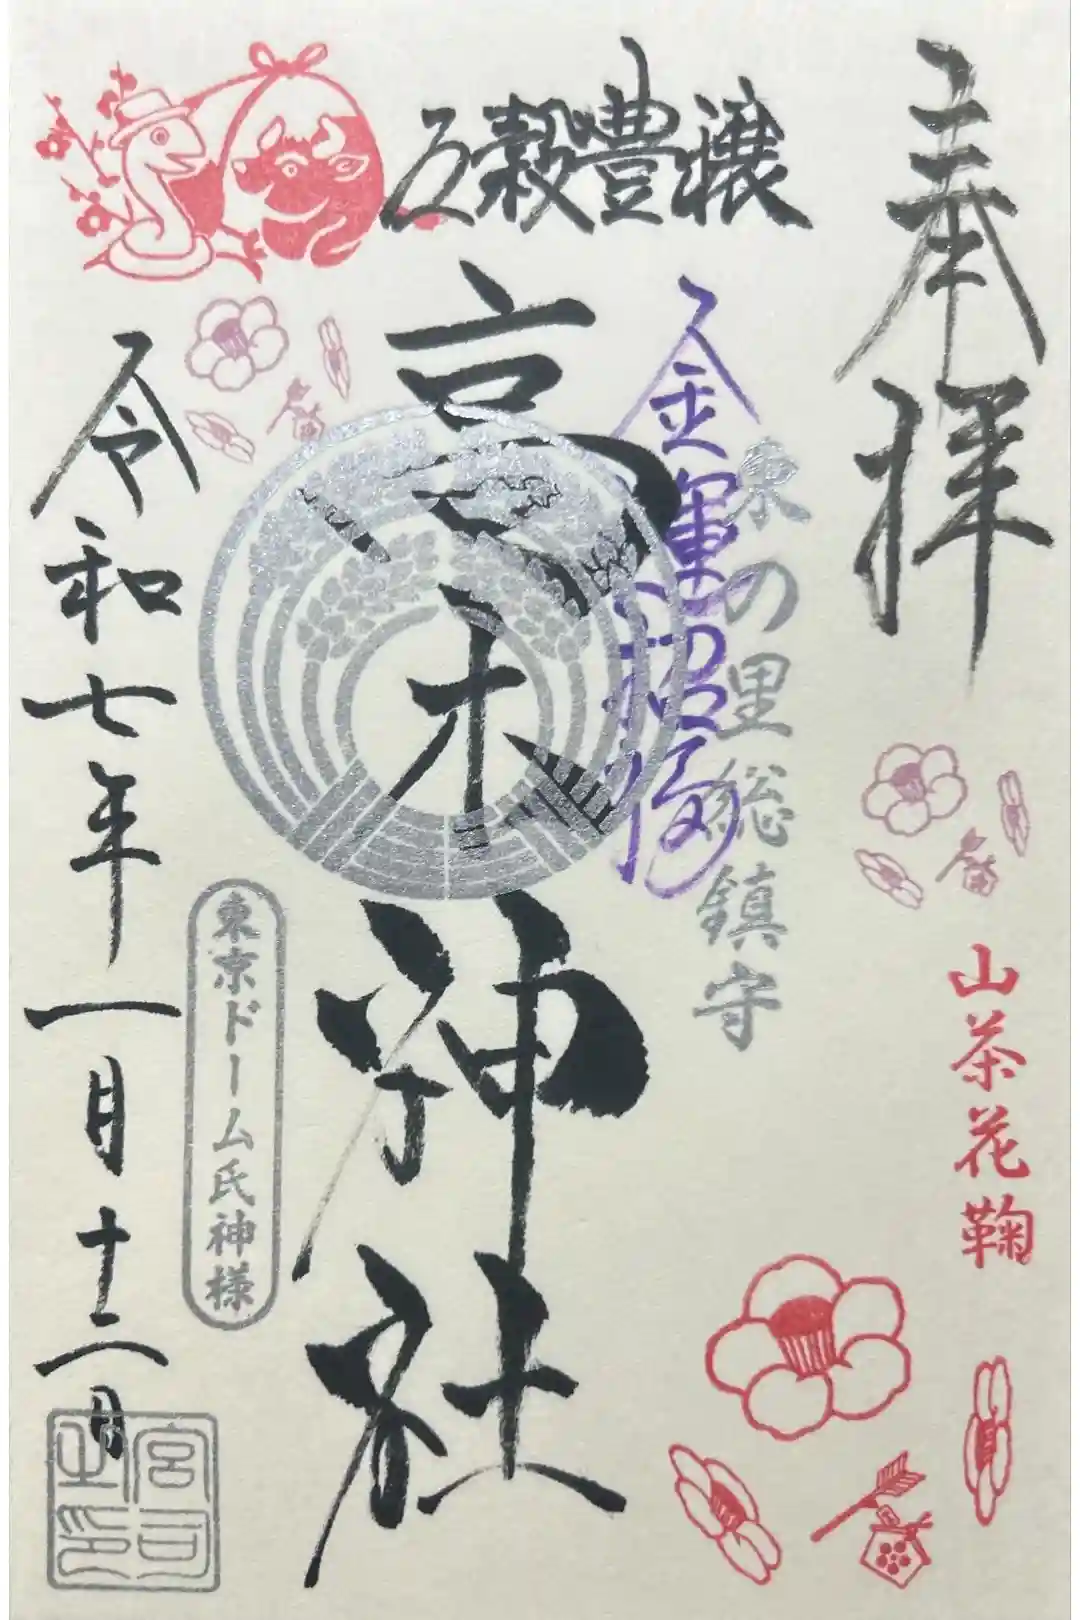 奉拝
山茶花鞠
五穀豊穣
金運招福
の里総鎮守
高木神社
東京ドーム氏神様
令和七年一月十二日
宮司之印